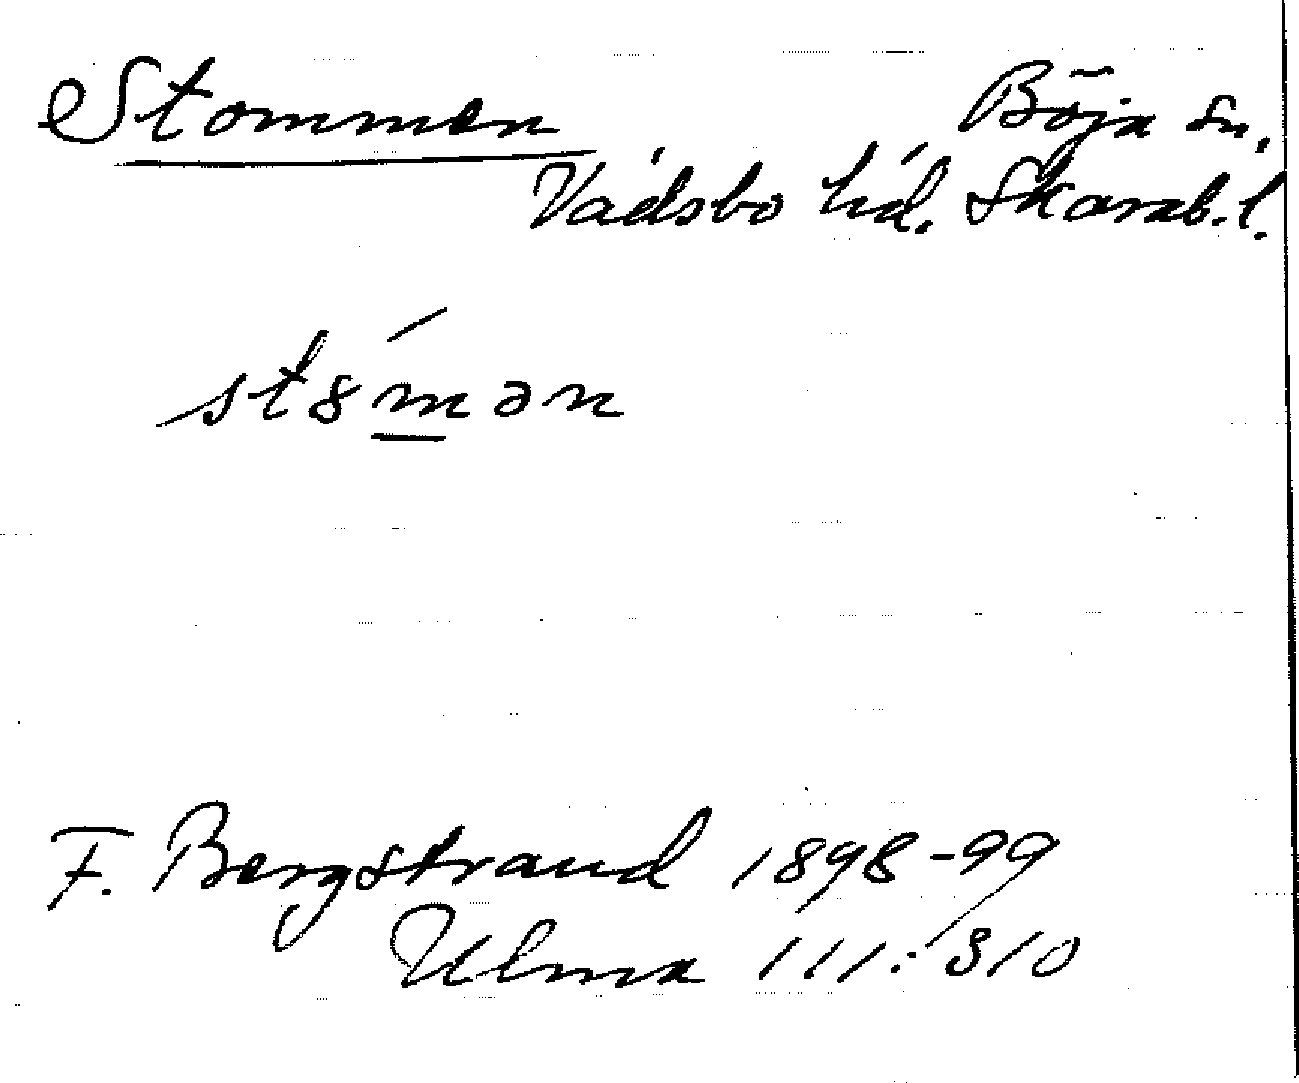 Stommen Böja sn.
Vadsbo hd. Skarab. l.
st8́m̲ən
F. Bergstrand 1898-99
Ulma 111:810